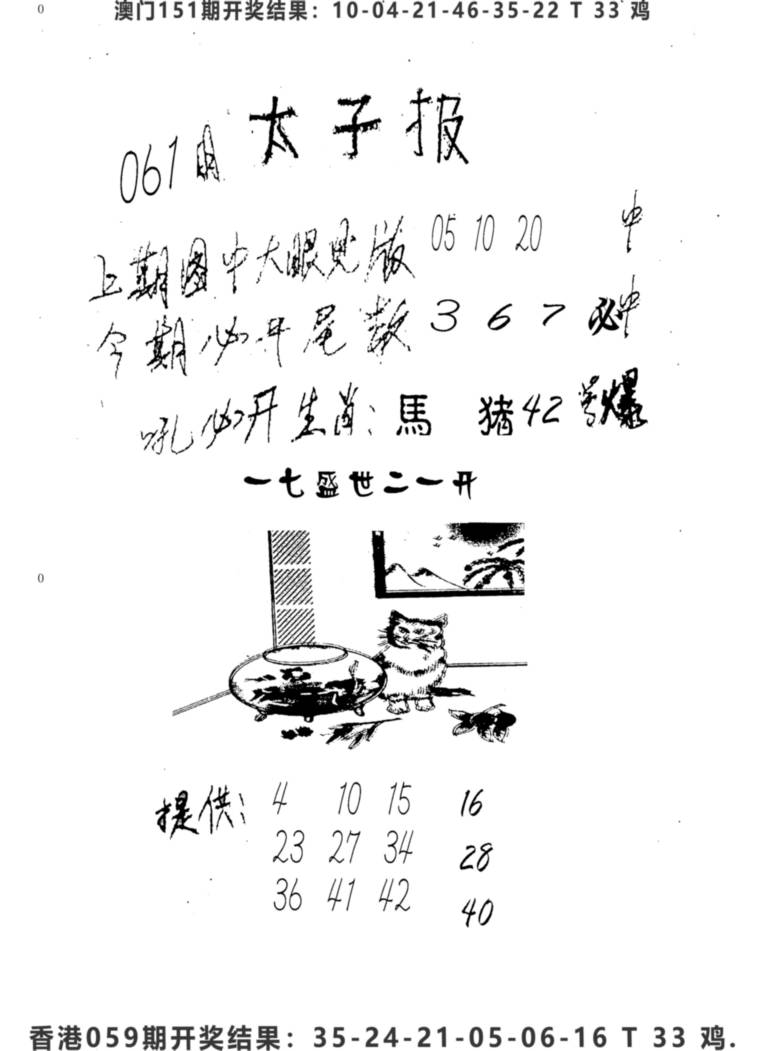 0
澳门151期开奖结果：10-04-21-46-35-22 T 33 鸡
061期 太子报
上期图中大眼见版 05 10 20 中
今期必开尾数 3 6 7 必中
吼必开生肖：馬 猪42 爆
一七盛世二一开
0
提供： 4 10 15 16
23 27 34 28
36 41 42 40
香港059期开奖结果：35-24-21-05-06-16 T 33 鸡.